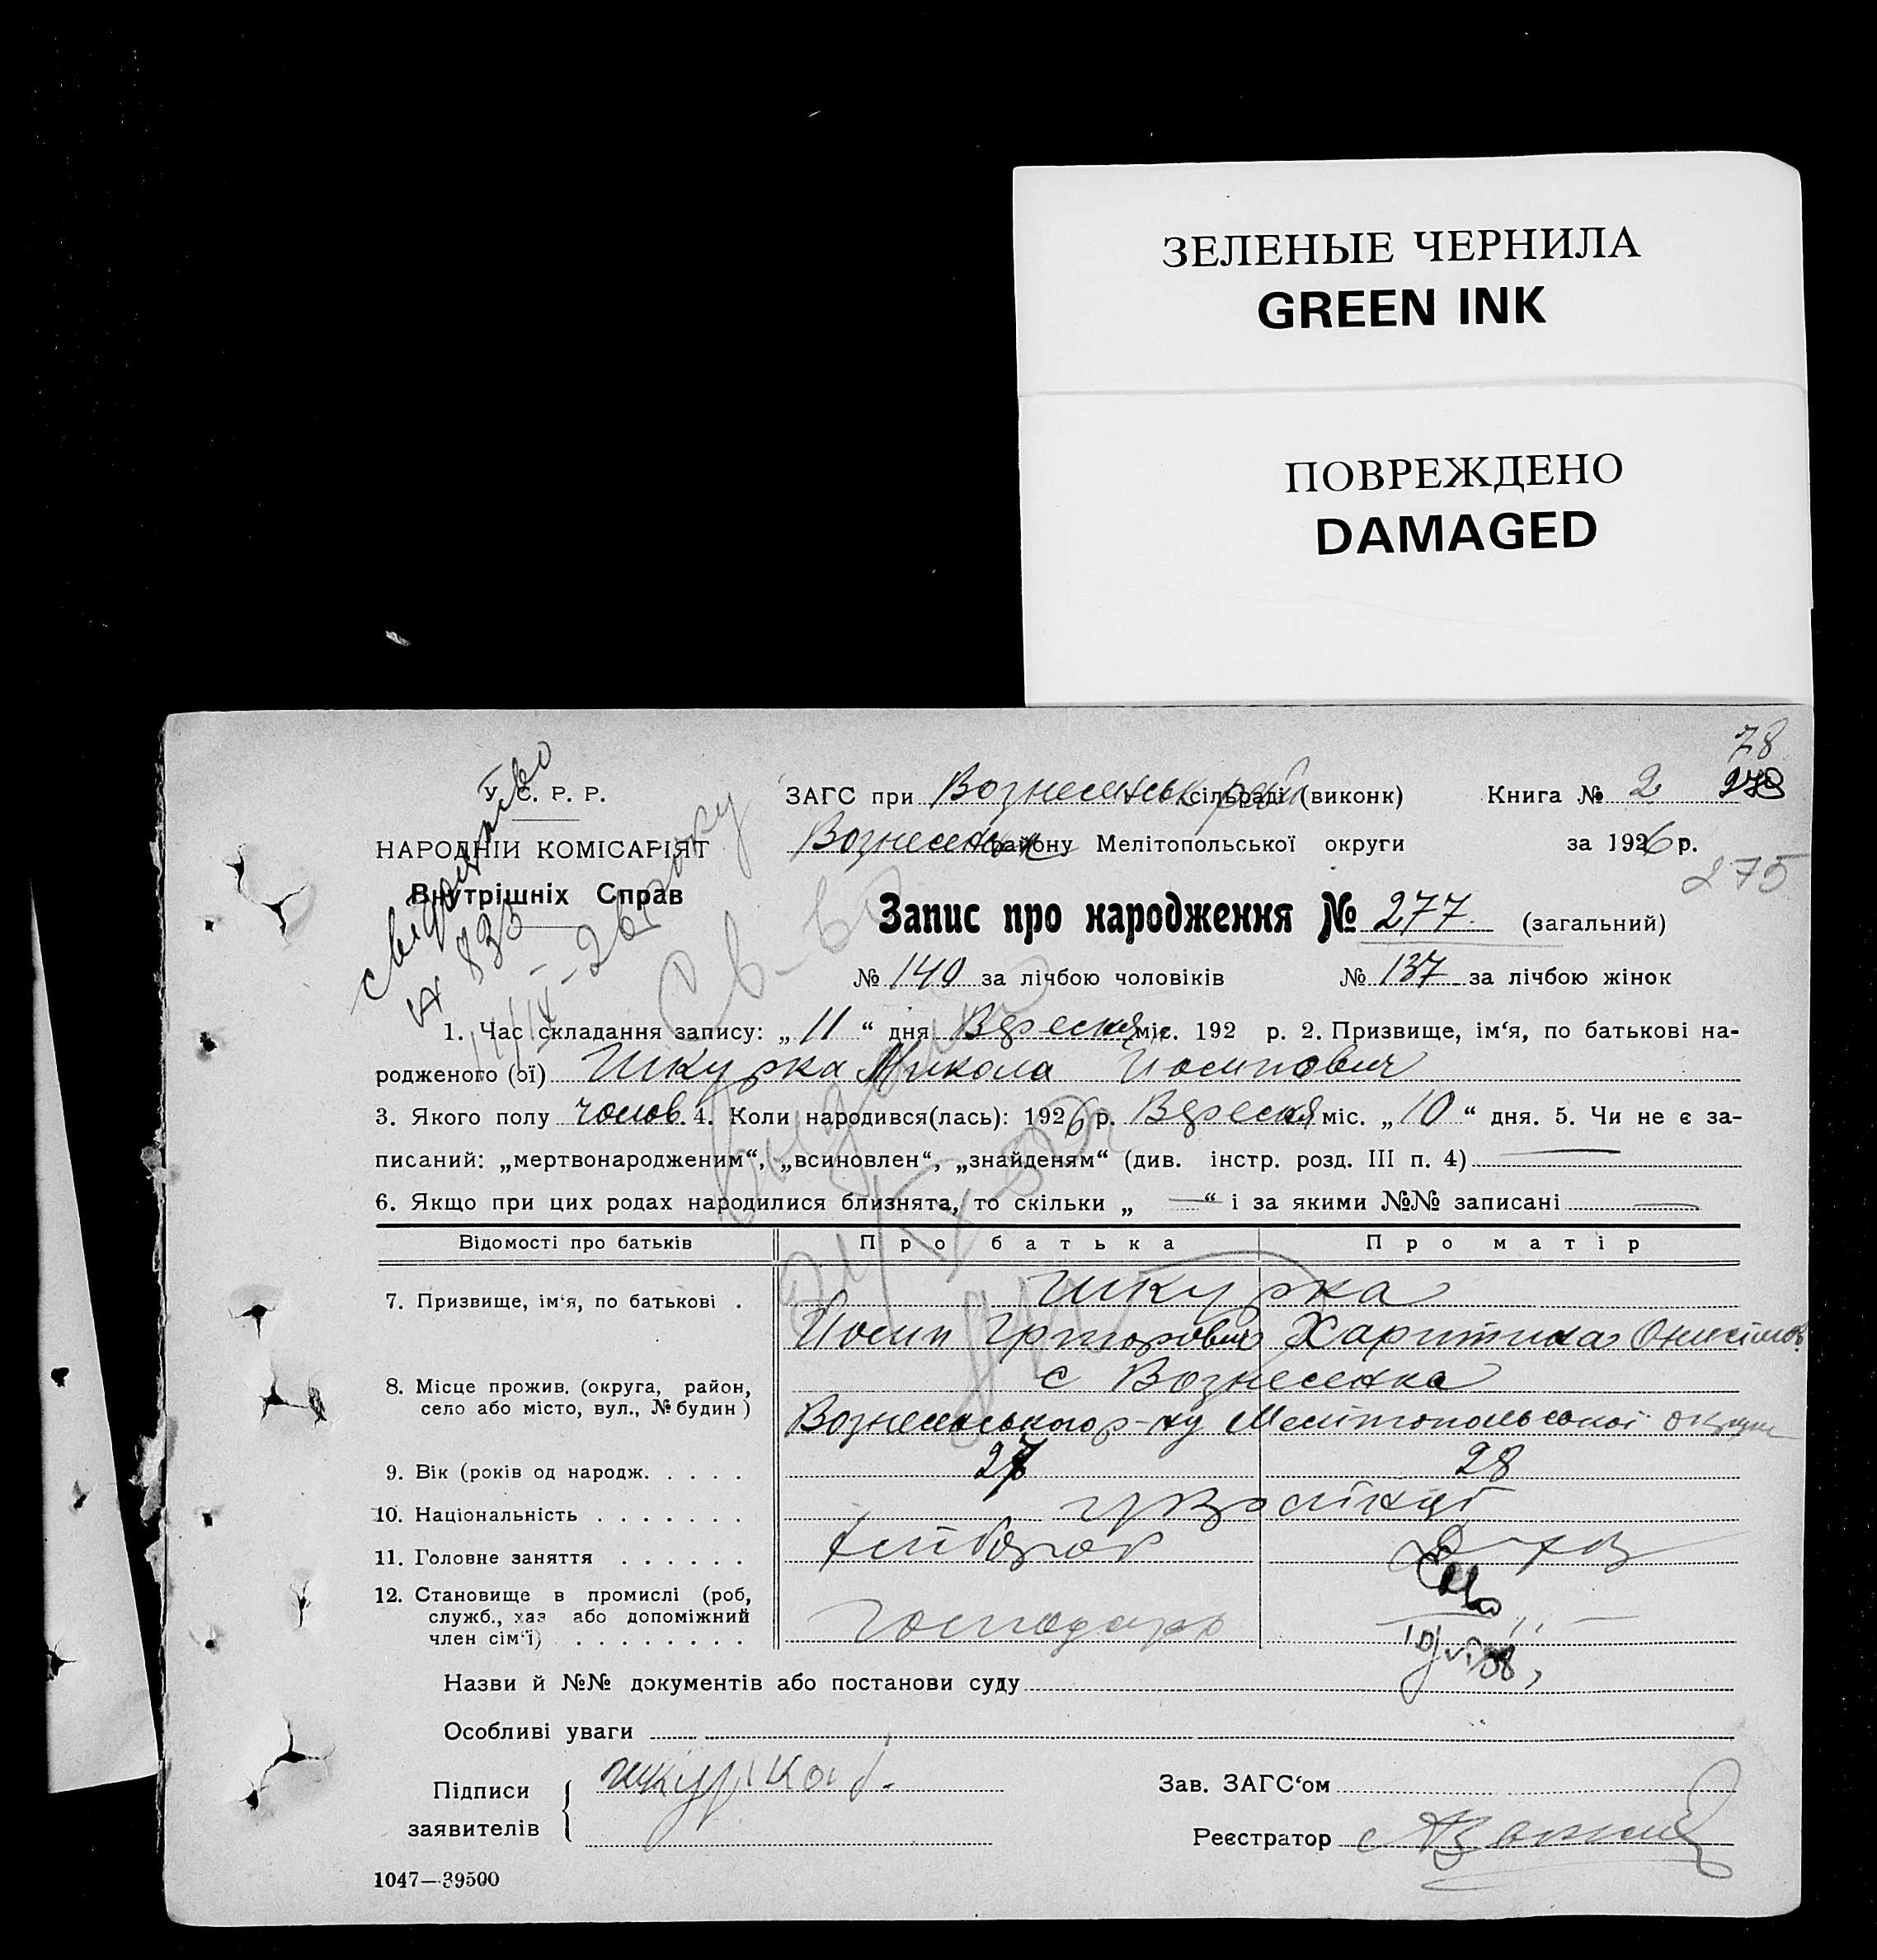 ЗЕЛЕНЫЕ ЧЕРНИЛА
GREEN INK
ПОВРЕЖДЕНО
DAMAGED
78
У. С. Р. Р.
НАРОДНІЙ КОМІСАРІЯТ
Внутрішніх Справ
свідоцтво
№ 835
ЗАГС при Вознесенськ сільраді (виконк) Книга № 2 278
Вознесенськ району Мелітопольської округи за 1926 р.
275
Запис про народження № 277 (загальний)
№ 140 за лічбою чоловіків № 137 за лічбою жінок
1. Час складання запису: „11“ дня Вересня міс. 192 р. 2. Призвище, ім‘я, по батькові на-
родженого (ої) Шкурка Микола Йосипович
3. Якого полу чолов. 4. Коли народився(лась): 1926 р. Вересня міс. „10“ дня. 5. Чи не є за-
писаний: „мертвонародженим“, „всиновлен“, „знайденям“ (див. інстр. розд. III п. 4)
6. Якщо при цих родах народилися близнята, то скільки „ —“ і за якими №№ записані —
Відомості про батьків Про батька Про матір
7. Призвище, ім‘я, по батькові . Шкурка
Йосип Григорович Харитина Онисімов.
8. Місце прожив. (округа, район, с Вознесенка
село або місто, вул., № будин ) Вознесенського р-ну Мелітопольської округи
9. Вік (років од народж. . . . . 27 28
10. Національність . . . . . . .
11. Головне заняття . . . . . . хлібороб
12. Становище в промислі (роб,
служб., хаз або допоміжний господарь — „ —
член сім‘ї) . . . . . . . .
Назви й №№ документів або постанови суду
Особливі уваги
Підписи Шкурка Зав. ЗАГС‘ом
заявителів Реєстратор
1047—39500